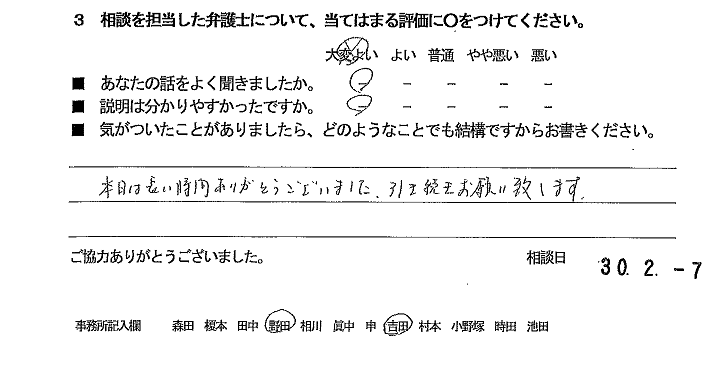 3 相談を担当した弁護士について、当てはまる評価に〇をつけてください。
大変よい よい 普通 やや悪い 悪い
■ あなたの話をよく聞きましたか。 - - - - -
■ 説明は分かりやすかったですか。 - - - - -
■ 気がついたことがありましたら、どのようなことでも結構ですからお書きください。
本日は長い時間ありがとうございました。引き続きお願い致します。
ご協力ありがとうございました。 相談日 30. 2. -7
事務所記入欄 森田 榎本 田中 野田 相川 眞中 申 吉田 村本 小野塚 時田 池田